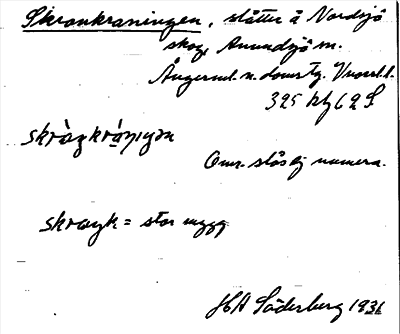 Skrankraningen, slåtter å Nordsjö
skog, Anundsjö sn.
Ångerml. n. domstg. Vnorrl. l.
325 kfg 62 S
skràŋkrạ̀niŋən
Omr. slås ej numera.
skraŋk = stor mygg
HA Söderberg 1931